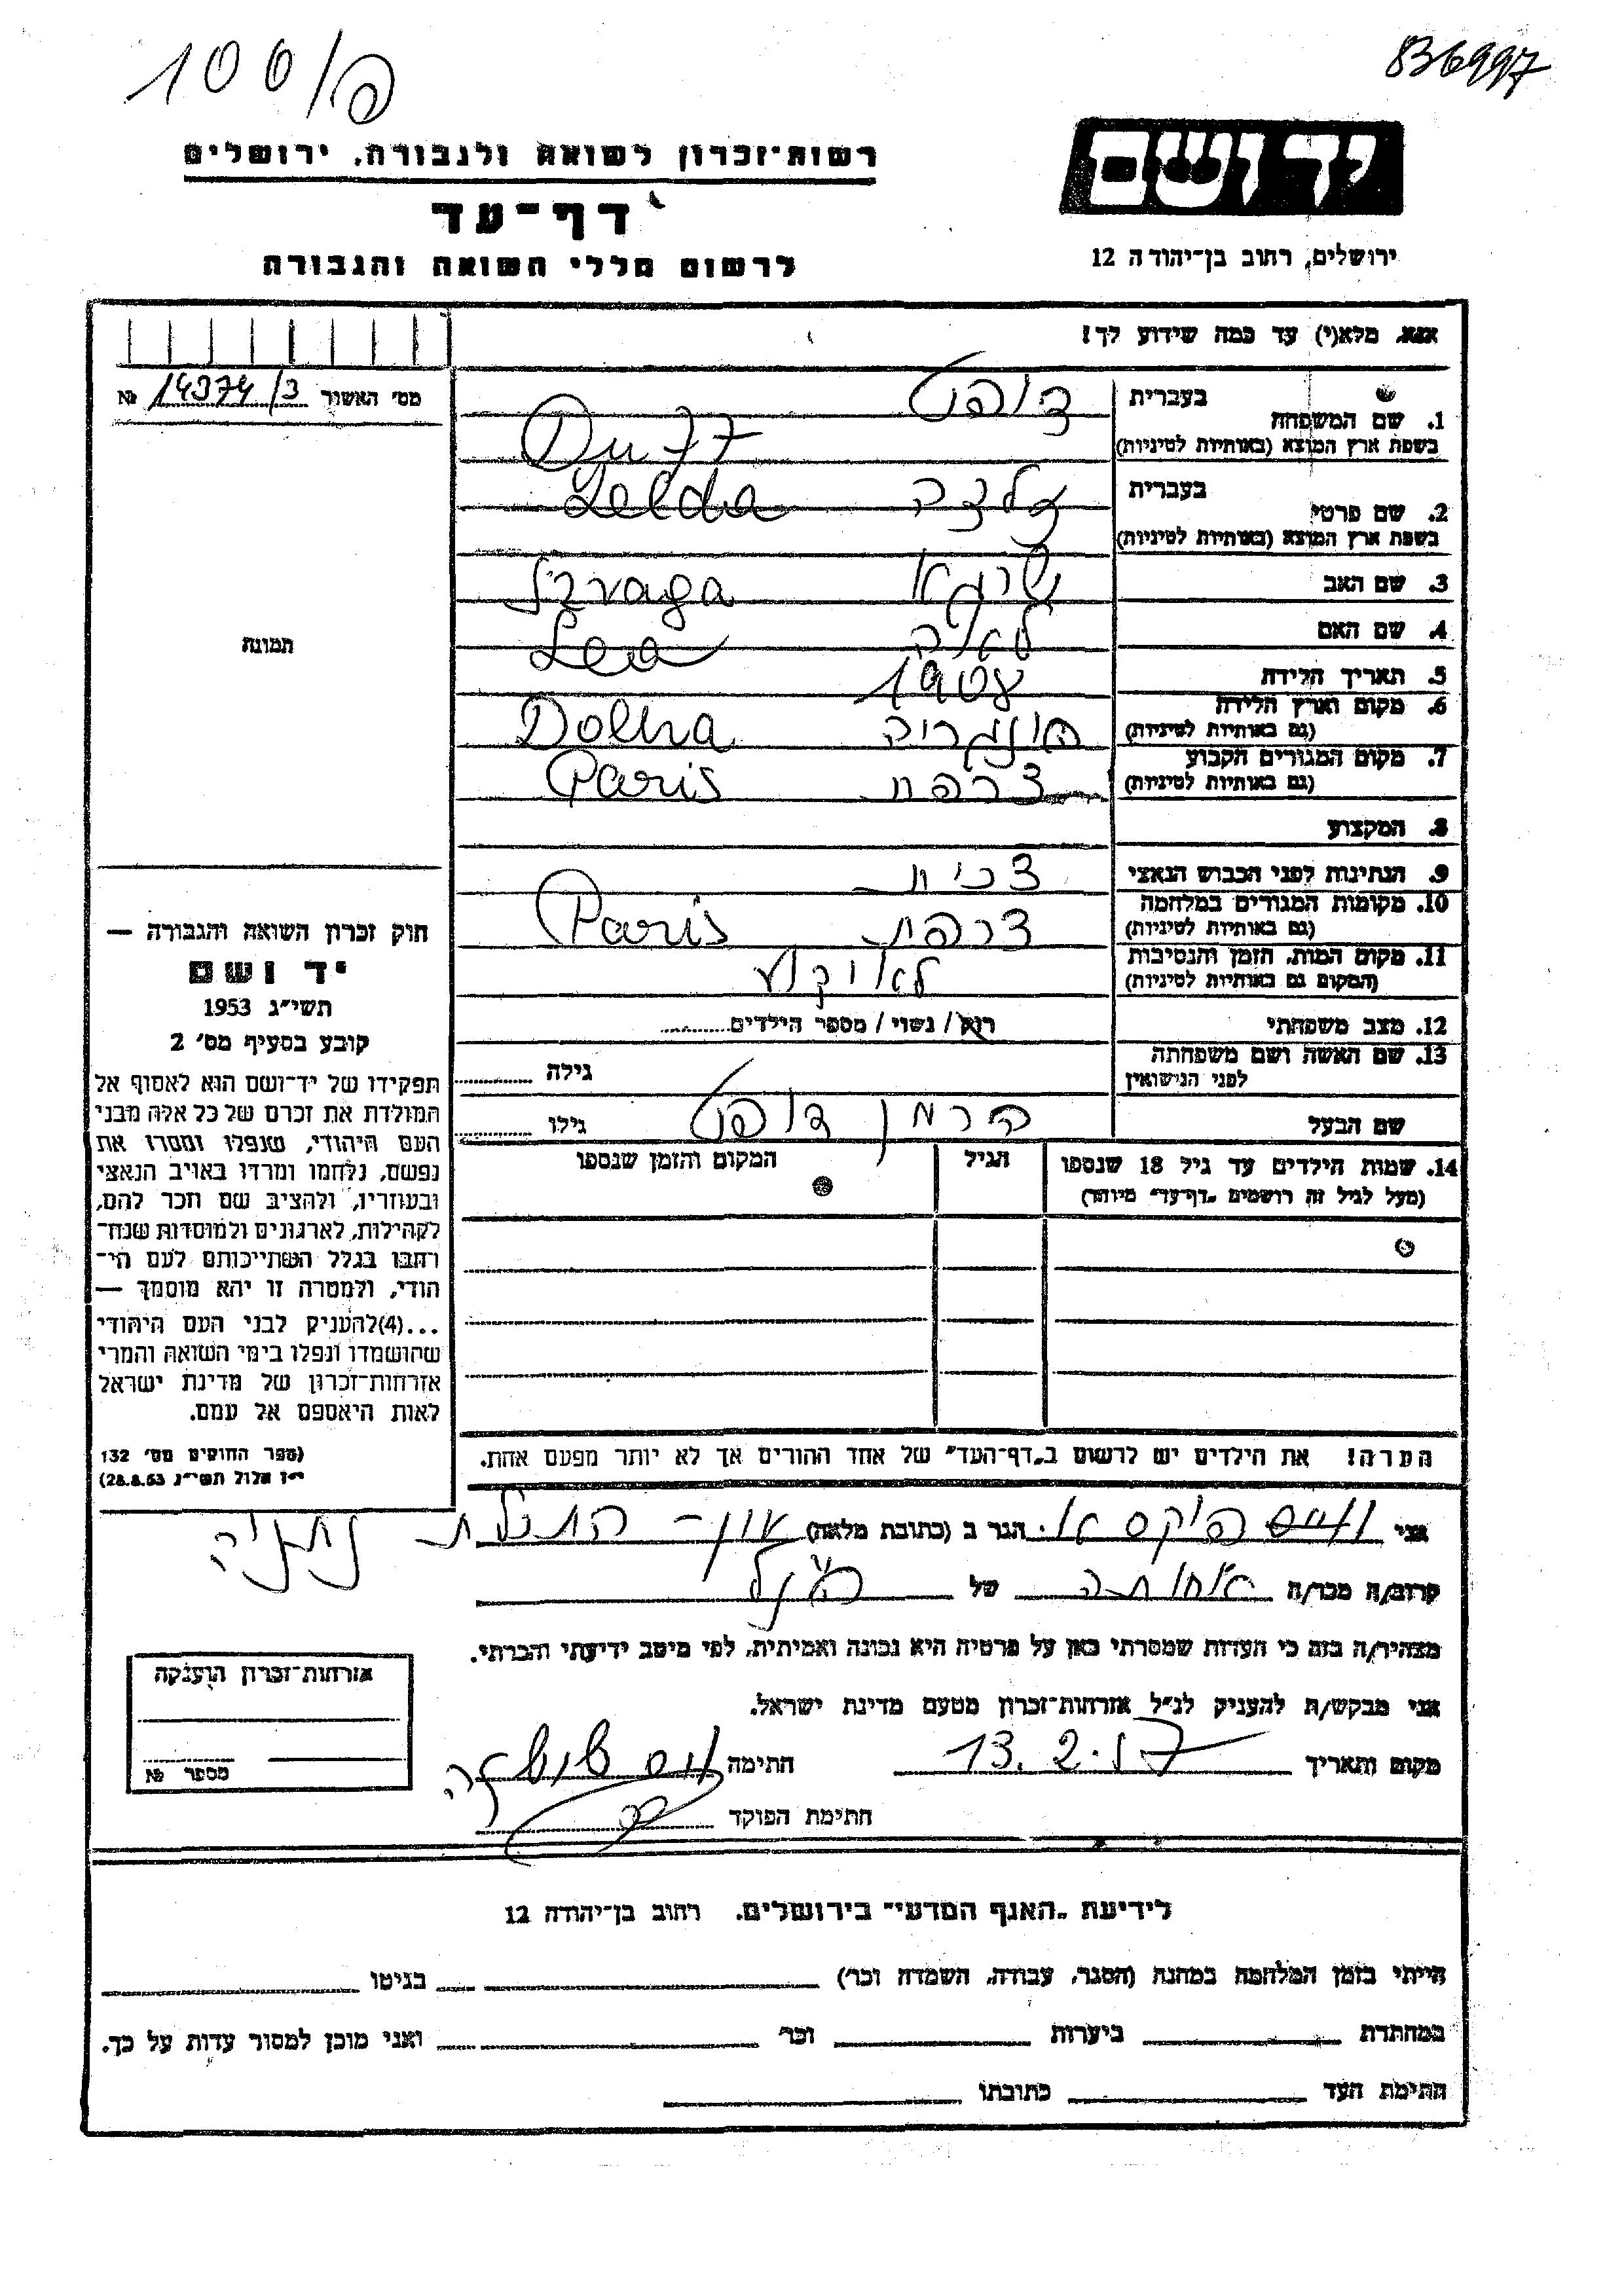 100/פ
836997
רשות־זכרון לשואה ולגבורה, ירושלים
יד ושם
דף־עד
ירושלים, רחוב בן־יהודה 12
לרשום חללי השואה והגבורה
אנא, מלא(י) עד כמה שידוע לך!
מס׳ האשור 14374/3 №
1. שם המשפחה בעברית דופט
בשפת ארץ המוצא (באותיות לטיניות) Duft
2. שם פרטי בעברית זלדה Zelda
בשפת ארץ המוצא (באותיות לטיניות)
3. שם האב שרגא Szraga
4. שם האם לאה Lea
5. תאריך הלידה 1908
6. מקום וארץ הלידה הונגריה Dolha
(גם באותיות לטיניות)
7. מקום המגורים הקבוע צרפת Paris
(גם באותיות לטיניות)
8. המקצוע
9. הנתינות לפני הכבוש הנאצי
10. מקומות המגורים במלחמה צרפת Paris
(גם באותיות לטיניות)
11. מקום המות, הזמן והנסיבות לא ידוע
(המקום גם באותיות לטיניות)
12. מצב משפחתי רווק / נשוי / מספר הילדים
13. שם האשה ושם משפחתה גילה
לפני הנישואין
שם הבעל הרמן דופט גילו
14. שמות הילדים עד גיל 18 שנספו הגיל המקום והזמן שנספו
(מעל לגיל זה רושמים „דף־עד״ מיוחד)
הערה! את הילדים יש לרשום ב„דף־העד״ של אחד ההורים אך לא יותר מפעם אחת.
תמונה
חוק זכרון השואה והגבורה —
יד ושם
תשי״ג 1953
קובע בסעיף מס׳ 2
תפקידו של יד־ושם הוא לאסוף אל
המולדת את זכרם של כל אלה מבני
העם היהודי, שנפלו ומסרו את
נפשם, נלחמו ומרדו באויב הנאצי
ובעוזריו, ולהציב שם וזכר להם,
לקהילות, לארגונים ולמוסדות שנח־
רבו בגלל השתייכותם לעם הי־
הודי, ולמטרה זו יהא מוסמך —
...(4)להעניק לבני העם היהודי
שהושמדו ונפלו בימי השואה והמרי
אזרחות־זכרון של מדינת ישראל
לאות היאספם אל עמם.
(ספר החוקים מס׳ 132
י״ז אלול תשי״ג 28.8.53)
אני הגר ב (כתובת מלאה) עין־התכלת נתניה
קרוב/ה מכר/ה אחותה של הנ״ל
מצהיר/ה בזה כי העדות שמסרתי כאן על פרטיה היא נכונה ואמיתית, לפי מיטב ידיעתי והכרתי.
אני מבקש/ת להעניק לנ״ל אזרחות־זכרון מטעם מדינת ישראל.
מקום ותאריך 13.2.57 חתימה
חתימת הפוקד
אזרחות־זכרון הוענקה
מספר №
לידיעת „האגף המדעי״ בירושלים, רחוב בן־יהודה 12
הייתי בזמן המלחמה במחנה (הסגר, עבודה, השמדה וכו׳) בגיטו
במחתרת ביערות וכו׳ ואני מוכן למסור עדות על כך.
חתימת העד כתובתו